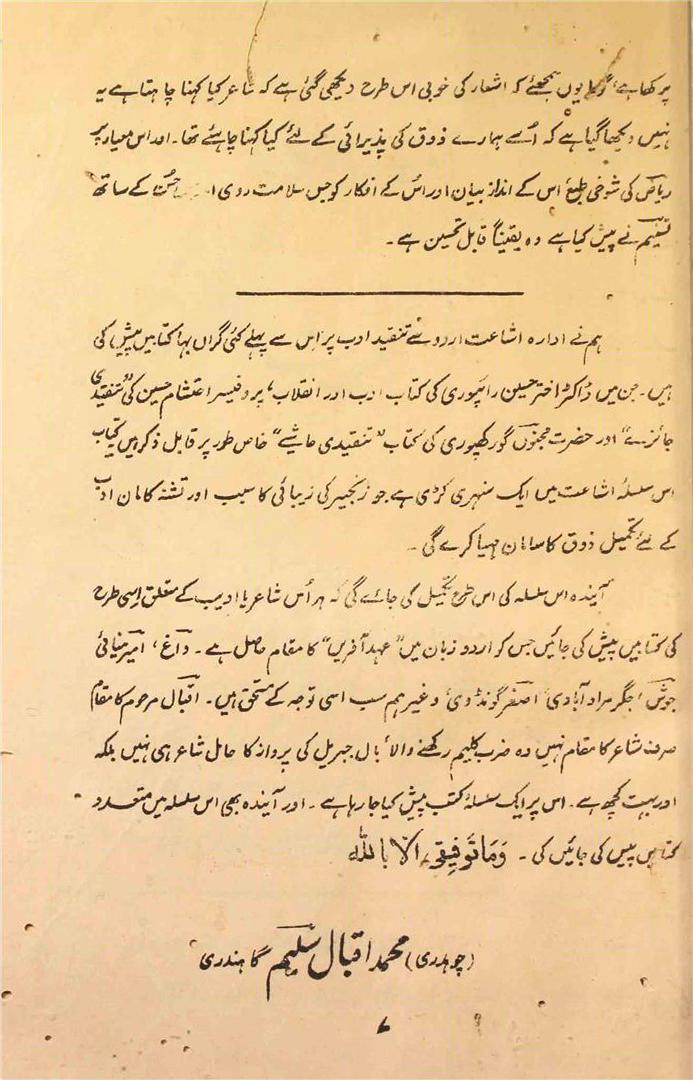 پرکھا ہے، گویا یوں سمجھئے کہ اشعار کی خوبی اس طرح دیکھی گئی ہے کہ شاعر کیا کہنا چاہتا ہے یہ
نہیں دیکھا گیا ہے کہ اُسے ہمارے ذوق کی پذیرائی کے لئے کیا کہنا چاہئے تھا۔ اور اس معیار پر
ریاض کی شوخیٔ طبع اس کے انداز بیان اور اس کے افکار کو جس سلامت روی اور حسن کے ساتھ
تسنیم نے پیش کیا ہے وہ یقیناً قابل تحسین ہے۔
ہم نے ادارہ اشاعت اردو سے تنقید ادب پر اس سے پہلے کئی گراں بہا کتابیں پیش کی
ہیں۔ جن میں ڈاکٹر اختر حسین رائپوری کی کتاب ادب اور انقلاب، پروفیسر احتشام حسین کی "تنقیدی
جائزے" اور حضرت مجنوں گورکھپوری کی کتاب "تنقیدی حاشیے" خاص طور پر قابل ذکر ہیں یہ کتاب
اس سلسلۂ اشاعت میں ایک سنہری کڑی ہے جو زنجیر کی زیبائی کا سبب اور تشنہ کامان ادب
کے لئے تکمیل ذوق کا سامان مہیا کرے گی۔
آیندہ اس سلسلہ کی اس طرح تکمیل کی جائے گی کہ ہر اُس شاعر یا ادیب کے متعلق اِسی طرح
کی کتابیں پیش کی جائیں جس کو اردو زبان میں "عہد آفریں" کا مقام حاصل ہے۔ داغ، امیر مینائی
جوش، جگر مرادآبادی، اصغر گونڈوی، وغیرہم سب اسی توجہ کے مستحق ہیں۔ اقبال مرحوم کا مقام
صرف شاعر کا مقام نہیں وہ ضرب کلیم رکھنے والا، بال جبریل کی پرواز کا حامل شاعر ہی نہیں بلکہ
اور بہت کچھ ہے۔ اس پر ایک سلسلۂ کتب پیش کیا جا رہا ہے۔ اور آیندہ بھی اس سلسلہ میں متعدد
کتابیں پیس کی جائیں گی۔ وَمَا تَوفِیقِی اِلّا بِاللّٰہ
(چوہدری) محمد اقبال سلیم گاہندری
۷